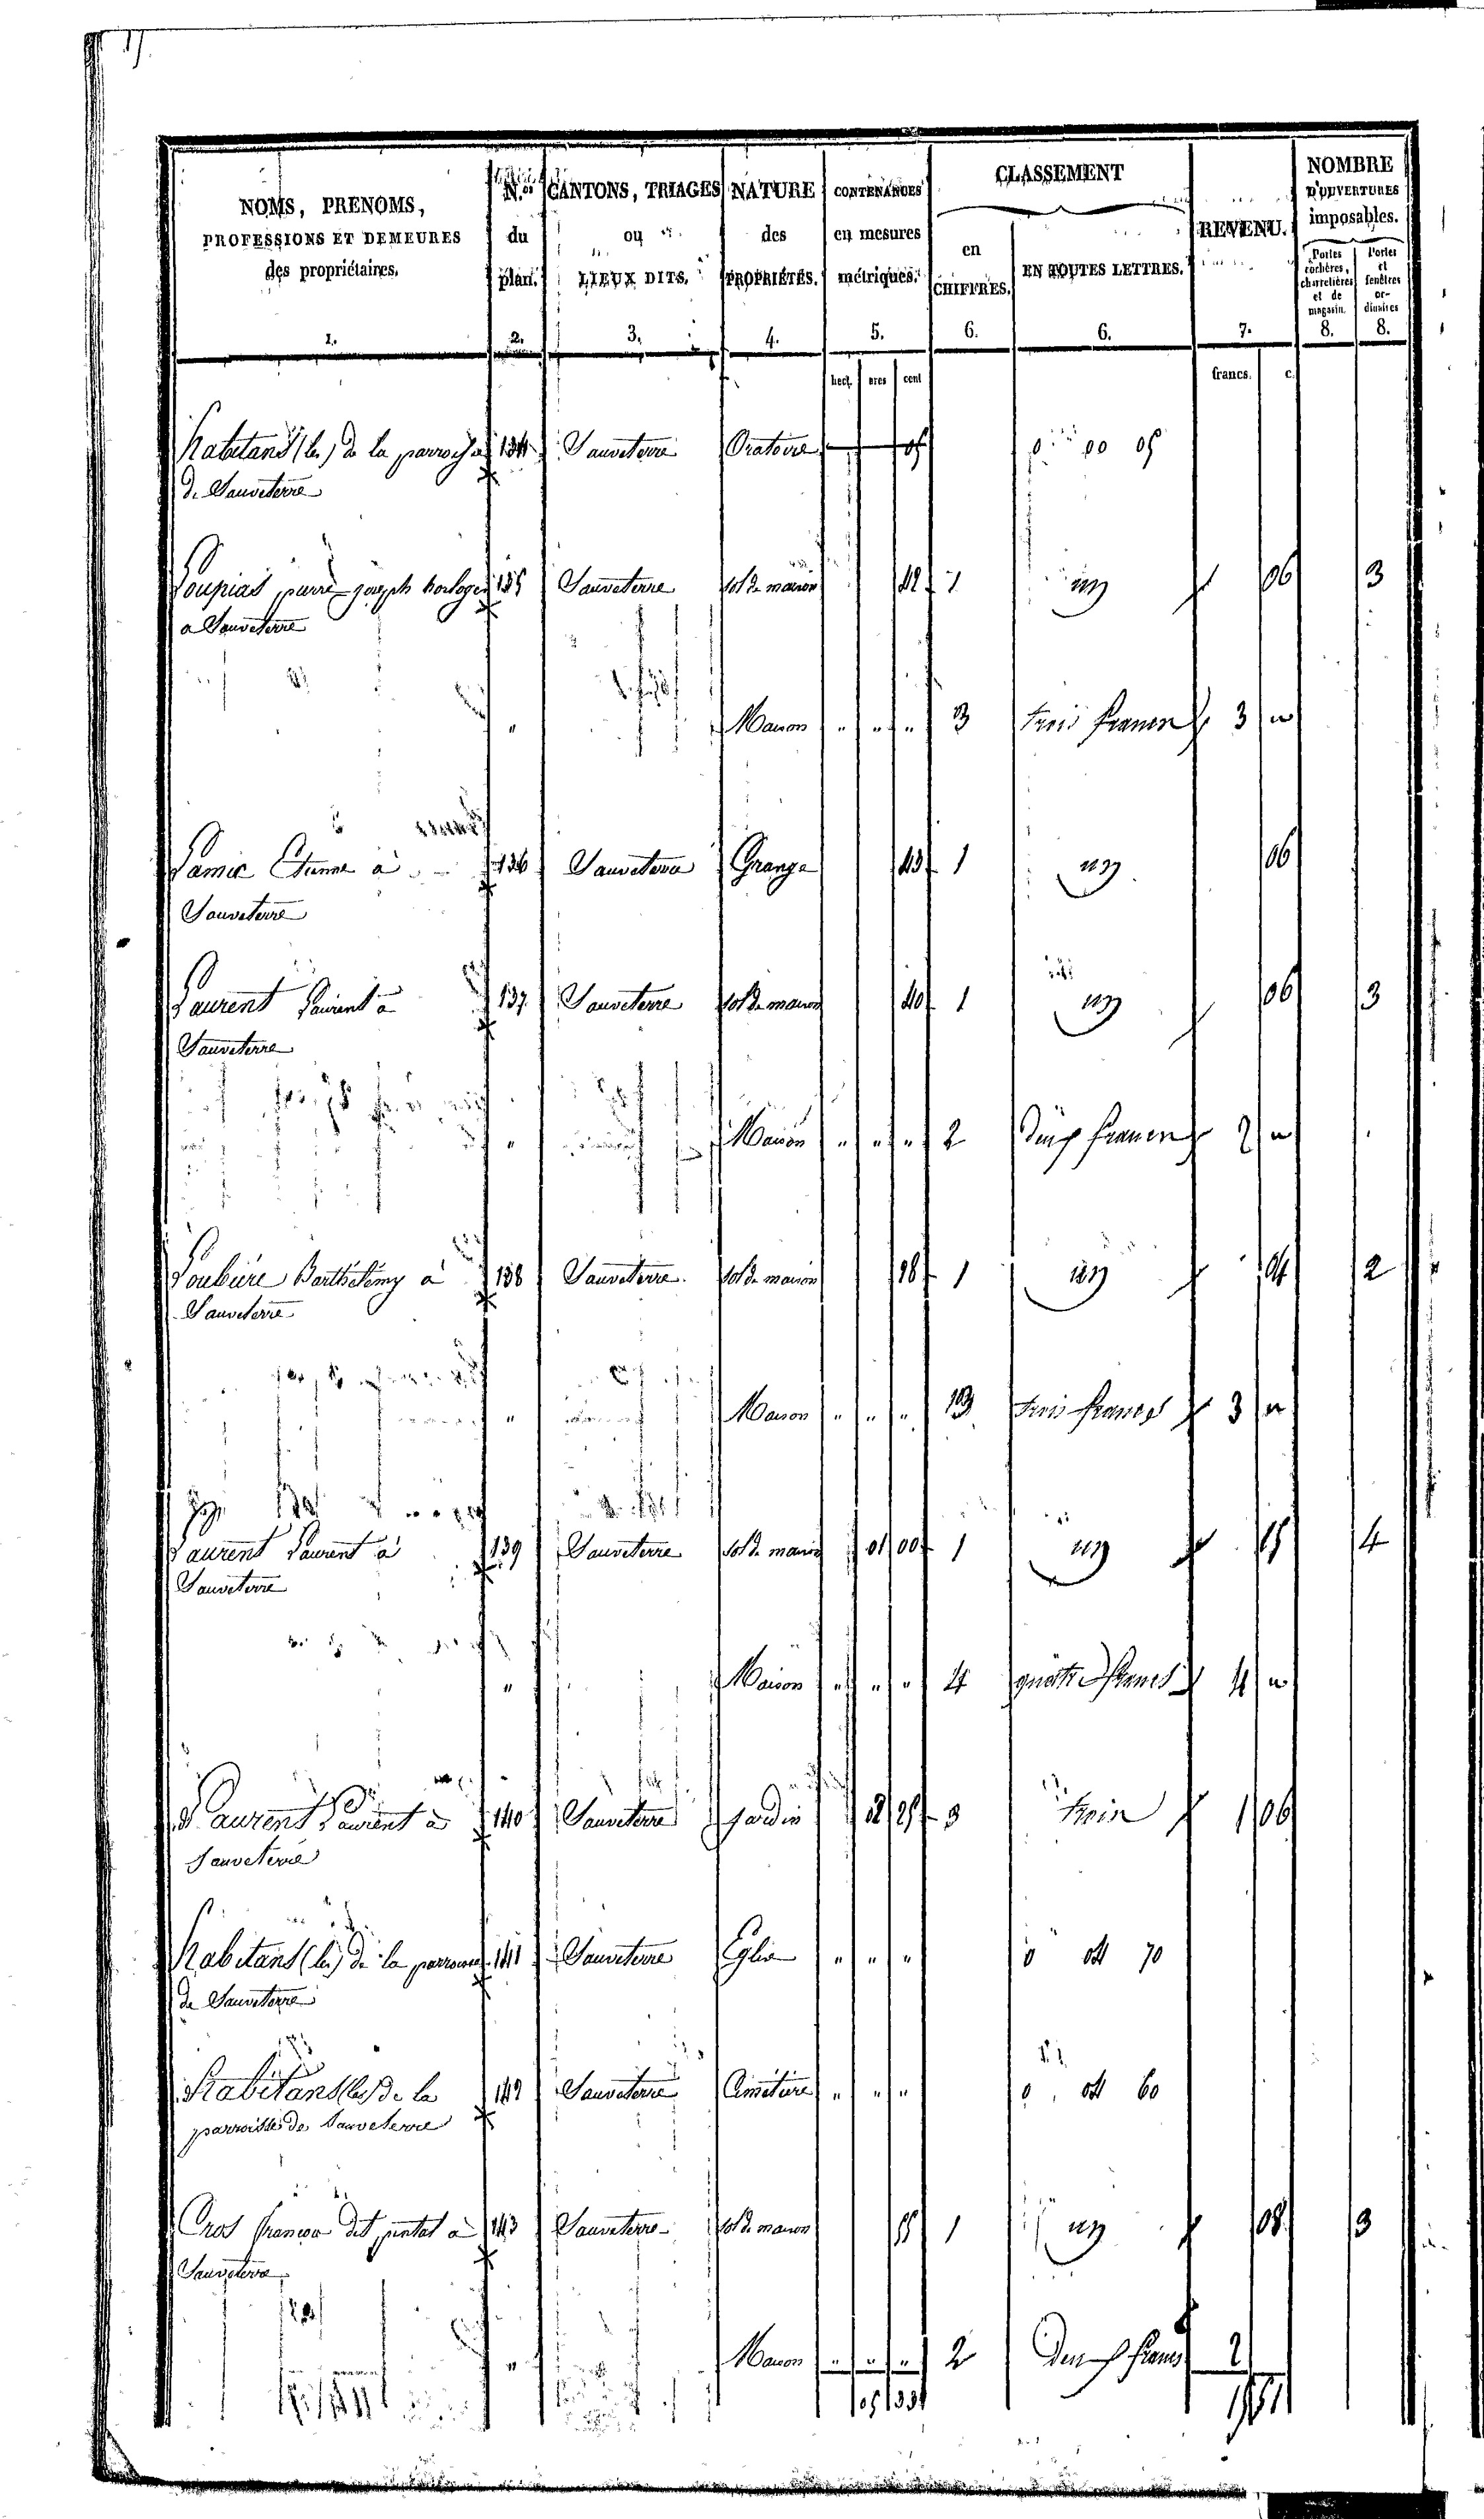 NOMS, PRENOMS,
PROFESSIONS ET DEMEURES
des propriétaires.
1.
N.os
du
plan.
2.
CANTONS, TRIAGES
ou
LIEUX DITS.
3.
NATURE
des
PROPRIÉTÉS.
4.
CONTENANCES
en mesures
métriques.
5.
CLASSEMENT
en
CHIFFRES.
6.
EN TOUTES LETTRES.
6.
REVENU.
7.
NOMBRE
D'OUVERTURES
imposables.
Portes cochères, charretières et de magasin.
8.
Portes et fenêtres ordinaires
8.
hect. ares cent
francs. c.
habitans (les) de la 134 Sauveterre Oratoire
de Sauveterre
pierre joseph horloger 135 Sauveterre sol de maison 1 un 06 3
a Sauveterre
" Maison " " " 3 trois francs 3 "
à 136 Sauveterre Grange 1 un 06
Sauveterre
Laurent Laurent à 137 Sauveterre sol de maison 1 un 06 3
Sauveterre
" Maison " " " 2 deux francs 2 "
Loubiere Barthélémy à 138 Sauveterre sol de maison 1 un 2
Sauveterre
" Maison " " " trois francs 3 "
Laurent Laurent à 139 Sauveterre sol de maison 01 00 1 un 15 4
Sauveterre
" Maison " " " 4 quatre francs 4 "
Laurent Laurent à 140 Sauveterre jardin 3 trois 1 06
Sauveterre
habitans (les) de la 141 Sauveterre Eglise " " " 70
de Sauveterre
habitans (les) de la 142 Sauveterre Cimetiere " " " 60
parroisse de Sauveterre
Cros françois dit à 143 Sauveterre sol de maison 1 un 08 3
Sauveterre
" Maison " " " 2 Deux francs 2